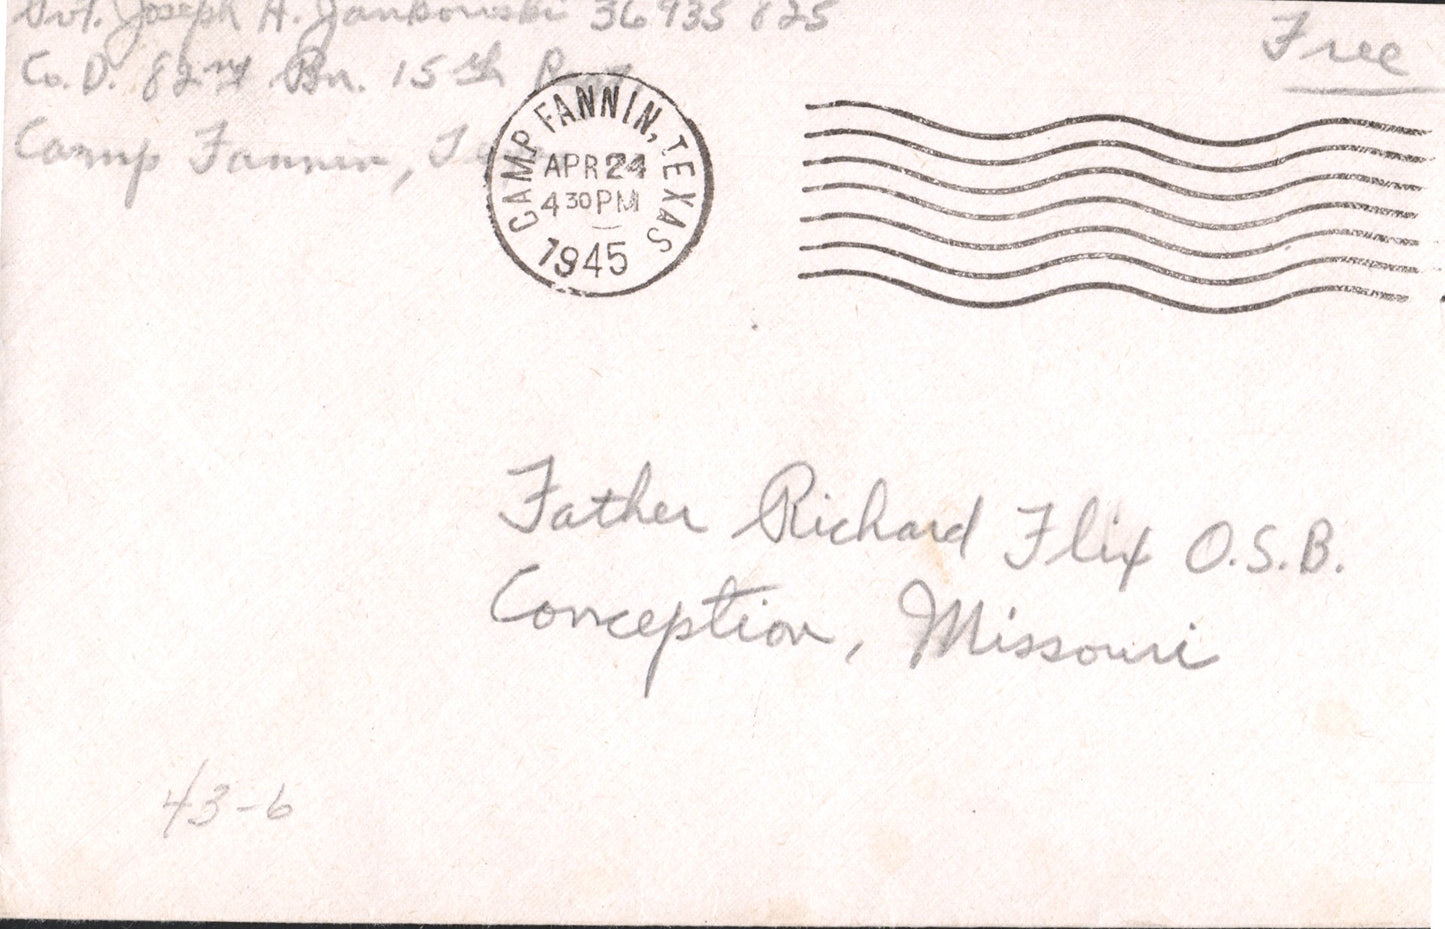 Pvt. Joseph A. Jankowski 36 935 625
Free
Co. D. 82nd Bn. 15th
Camp Fannin,
CAMP FANNIN, TEXAS
APR 24
4 30 PM
1945
Father Richard Flix O.S.B.
Conception, Missouri
43-6